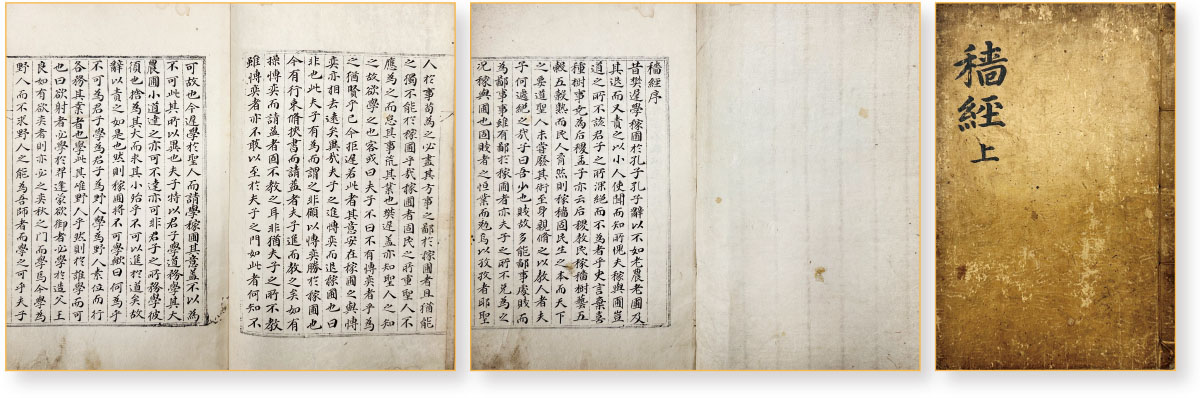 穡經 上
穡經序
昔樊遲學稼圃於孔子孔子辭以不如老農老圃及
其退而又責之以小人使聞而知所愧夫稼與圃豈
道之所不該君子之所深絕而不為者乎史言棄喜
種樹事堯為后稷孟子亦云后稷教民稼穡樹藝五
穀五穀熟而民人育然則稼穡固民生之本而天下
之要道聖人未嘗廢其術至身親脩之以教人者夫
子何遽絕之哉子曰吾少也賤故多能鄙事處賤而
為鄙事事雖有鄙於稼圃者亦夫子之所不免為之
况稼與圃也固賤者之恒業而勉焉以孜孜者耶聖
人於事苟為之必盡其方事之鄙於稼圃者且猶能
之獨不能於稼圃乎哉稼圃者固民之所重聖人不
應為之而怠其事荒其業也樊遲盖亦知聖人之知
之故欲學之也客或曰夫子不曰不有博奕者乎為
之猶賢乎已今拒遲若此者其意安在稼圃之與博
奕亦相去遠矣哉夫子之進博奕而退稼圃也曰
非也此夫子有為而謂之非顧以博奕勝於稼圃也
今有行束脩挾書而請益者夫子進而教之矣如有
操博奕而請益者固不教之耳非猶夫子之所不教
雖博奕者亦不敢以至於夫子之門如此者何知不
可故也今遲學於聖人而請學稼圃其意盖不以為
不可此其所以異也夫子特以君子學道務學其大
農圃小道達之亦可不達亦可非君子之所務學彼
須也捨為其大而求其小殆乎不可以進於道矣故
辭以責之如是也然則稼圃將不可學歟曰何為乎
不可為君子學為君子為野人學為野人素位而行
各務其業者也學此其唯野人乎然則於誰學而可
也曰欲射者必學於羿逢蒙欲御者必學於造父王
良如有欲奕者則亦必之奕秋之門而學焉今學為
野人而不求野人之能為吾師者而學之可乎夫子